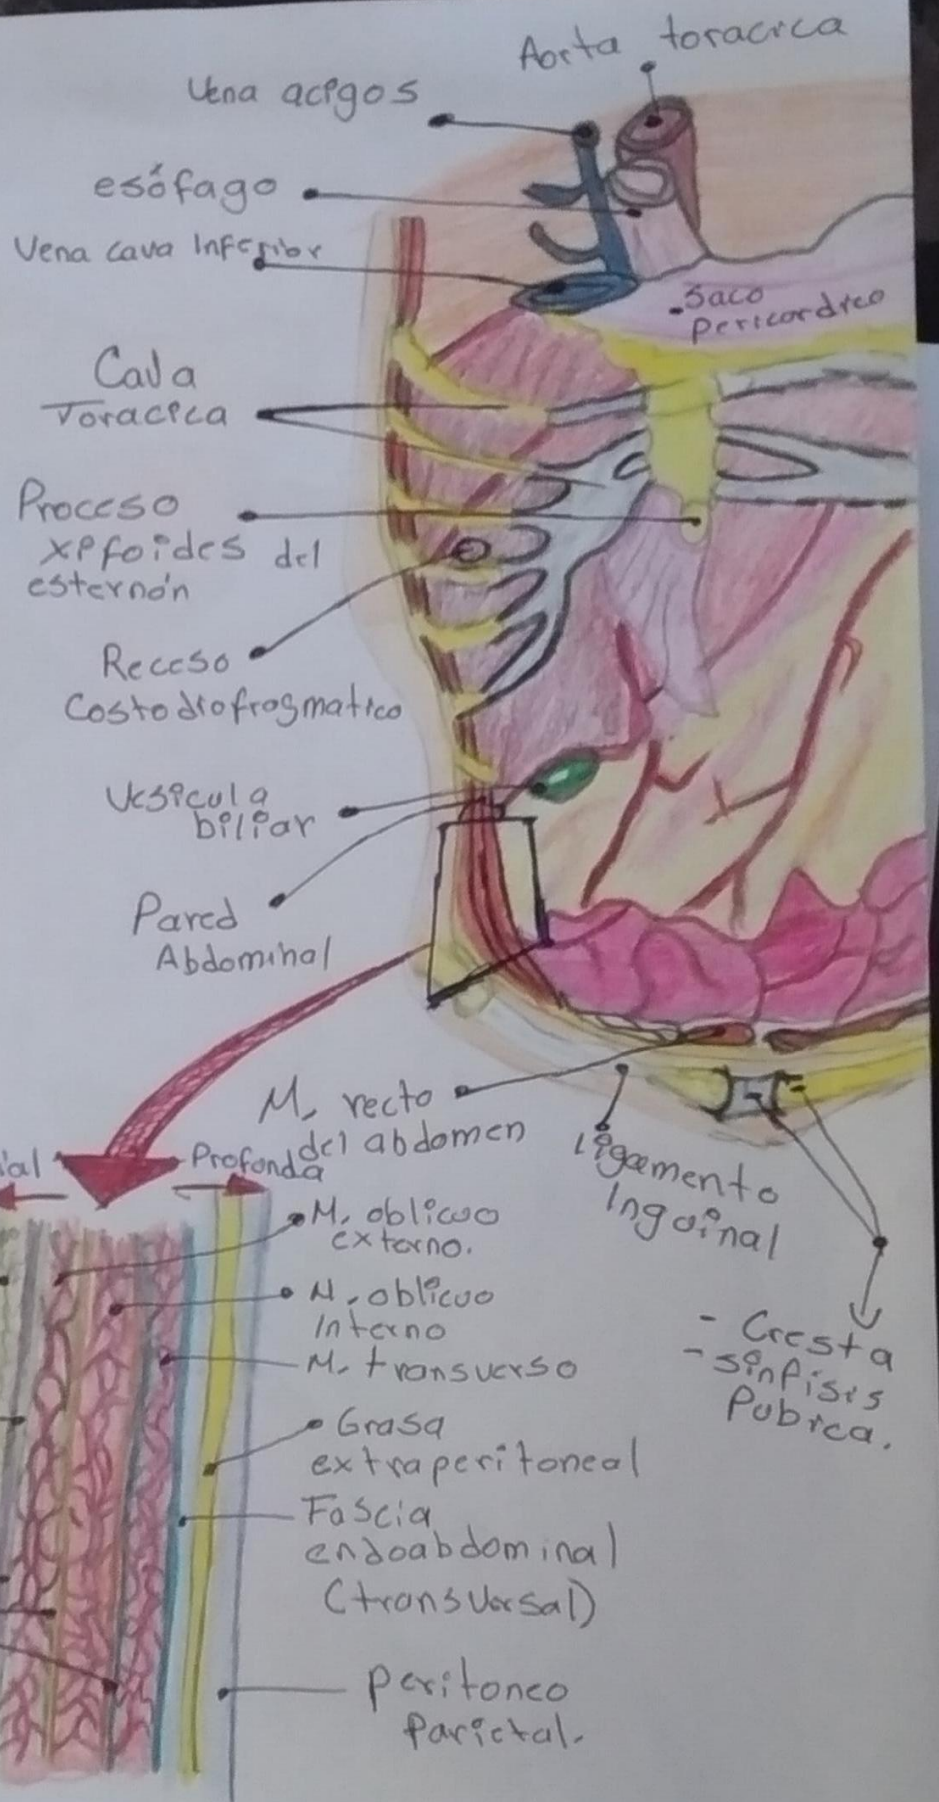 Aorta toracica
Vena acigos
esófago
Vena cava Inferior
-Saco
pericardico
Cava
Toracica
Proceso
xifoides del
esternón
Receso
Costodiafragmatico
Vesicula
biliar
Pared
Abdominal
M. recto
del abdomen
Ligamento
Inguinal
- Cresta
- sinfisis
Pubica.
ial
Profonda
M. oblicuo
externo.
M. oblicuo
Interno
M. transverso
Grasa
extraperitoneal
Fascia
endoabdominal
(transversal)
peritoneo
Parietal.